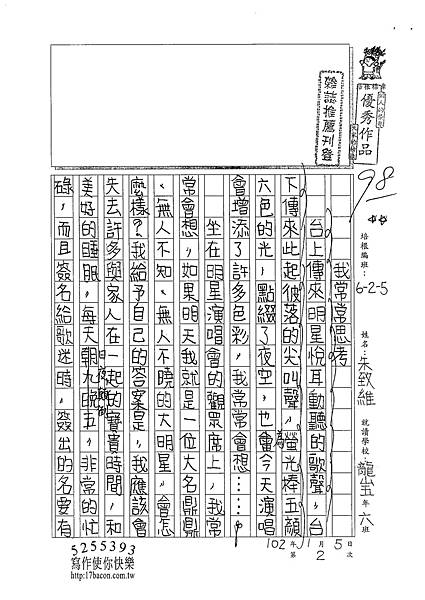 優秀作品
雜誌推薦刊登
98
培根編班：6-2-5
姓名：朱致維
就讀學校：龍山 五年六班
我常常思考
台上傳來明星悅耳動聽的歌聲，台
下傳來此起彼落的尖叫聲，螢光棒五顏
六色的光，點綴了夜空，也為今天演唱
會增添了許多色彩，我常常會想……。
坐在明星演唱會的觀眾席上，我常
常會想，如果明天我就是一位大名鼎鼎
、無人不知、無人不曉的大明星，會怎
麼樣？我給予自己的答案是，我應該會
失去許多與家人在一起的寶貴時間，和
美好的睡眠，每天朝九晚五，非常的忙
碌，而且簽名給歌迷時，簽出的名要有
102年1月5日
第2次
5255393
寫作使你快樂
http://www.17bacon.com.tw